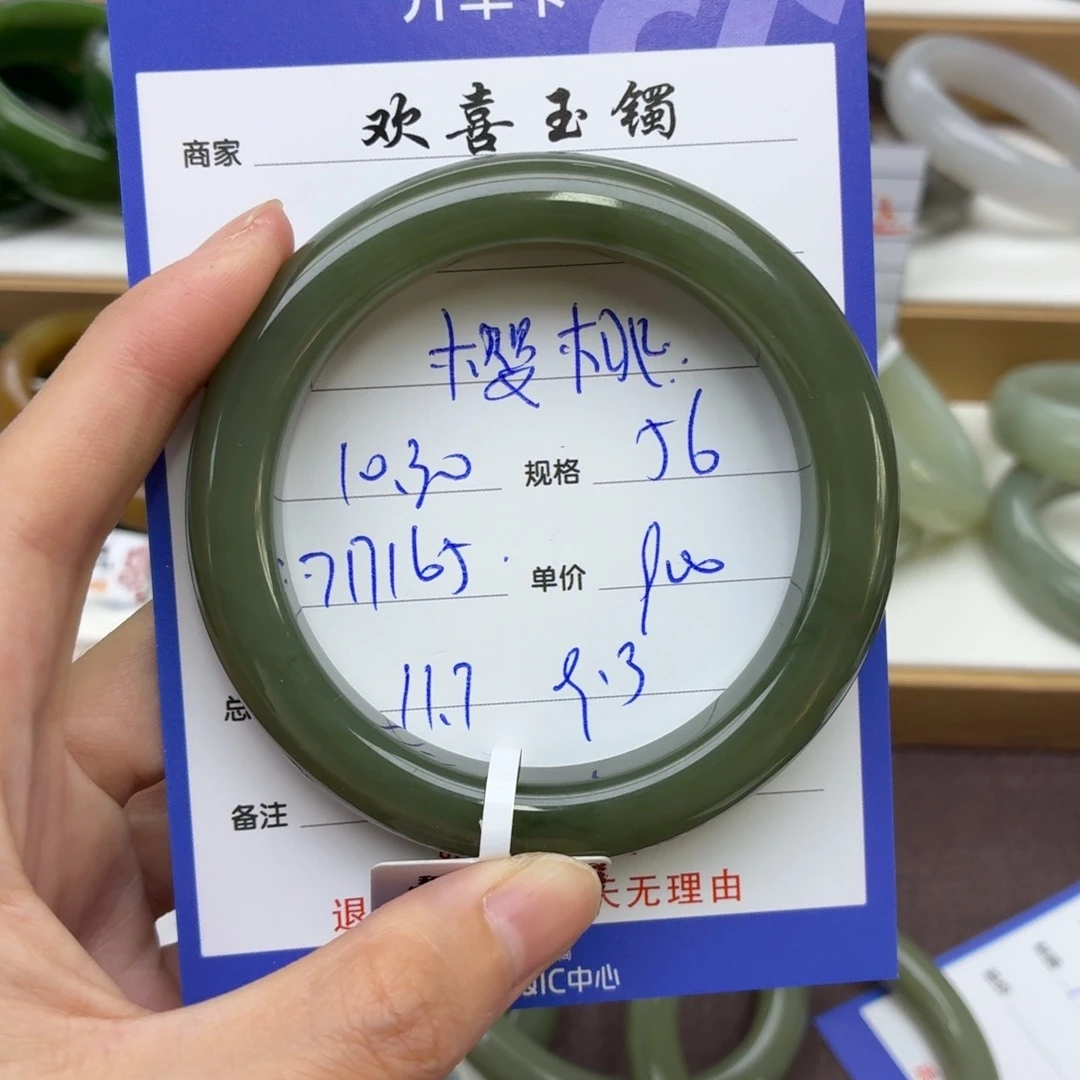 开单卡
商家 欢喜玉镯
樱桃
10.30 规格 56
单价
11.7 9.3
总
备注
退 天无理由
IC中心